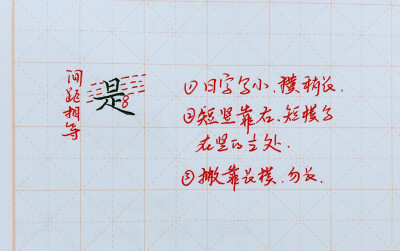 间距相等
是
8
①日字写小、横稍长
②短竖靠右、短横写
在竖的立处.
③撇靠长横、勿长.